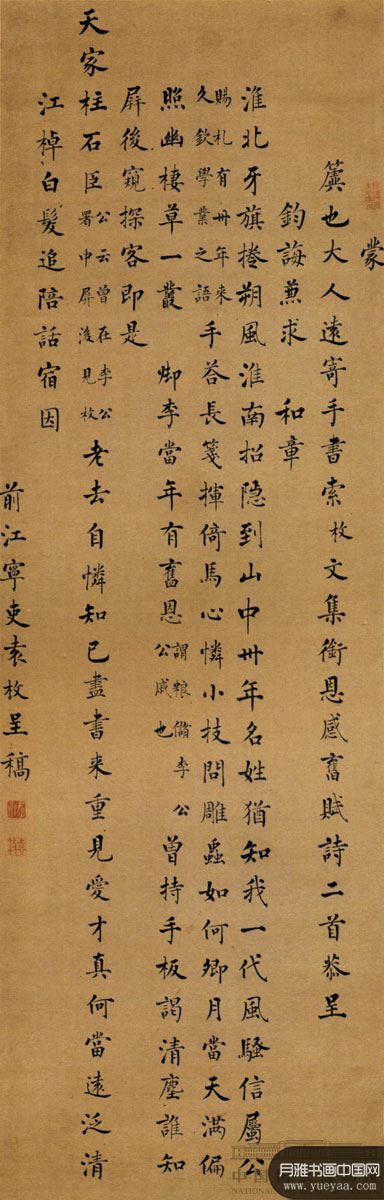 蒙
簾也大人遠寄手書索枚文集銜恩感舊賦詩二首恭呈
鈞誨兼求 和章
淮北牙旗捲朔風淮南招隐到山中卅年名姓猶知我一代風騷信屬公
賜札有卅年來久欽學業之語手荅長箋揮倚馬心憐小技問雕蟲如何卿月當天滿偏
照幽棲草一叢 御李當年有舊恩謂粮儲李公公戚也曾持手板謁清塵誰知
屏後窺探客即是
天家柱石臣公云曾在李公署中屏後見枚老去自憐知己盡書來重見愛才真何當遠泛清
江棹白髮追陪話宿因
前江寧吏袁枚呈稿
中国
NATIONAL
月雅书画中国网
www.yueyaa.com